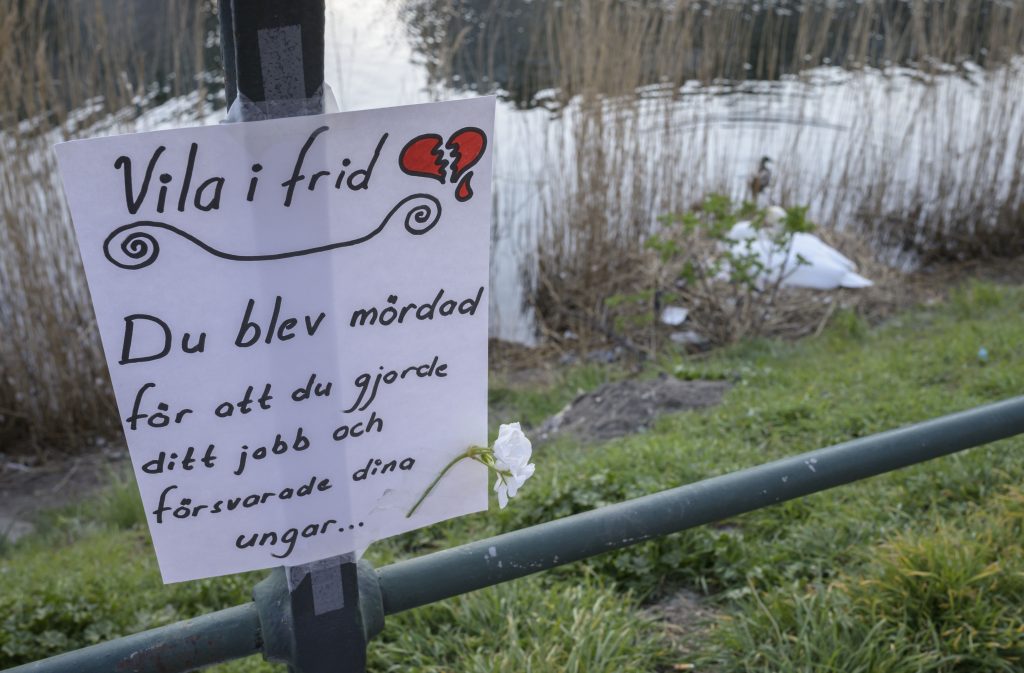 Vila i frid
Du blev mördad
för att du gjorde
ditt jobb och
försvarade dina
ungar...